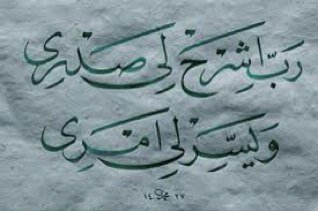 رَبِّ اشْرَحْ لِى صَدْرِى
وَيَسِّرْ لِى اَمْرِى